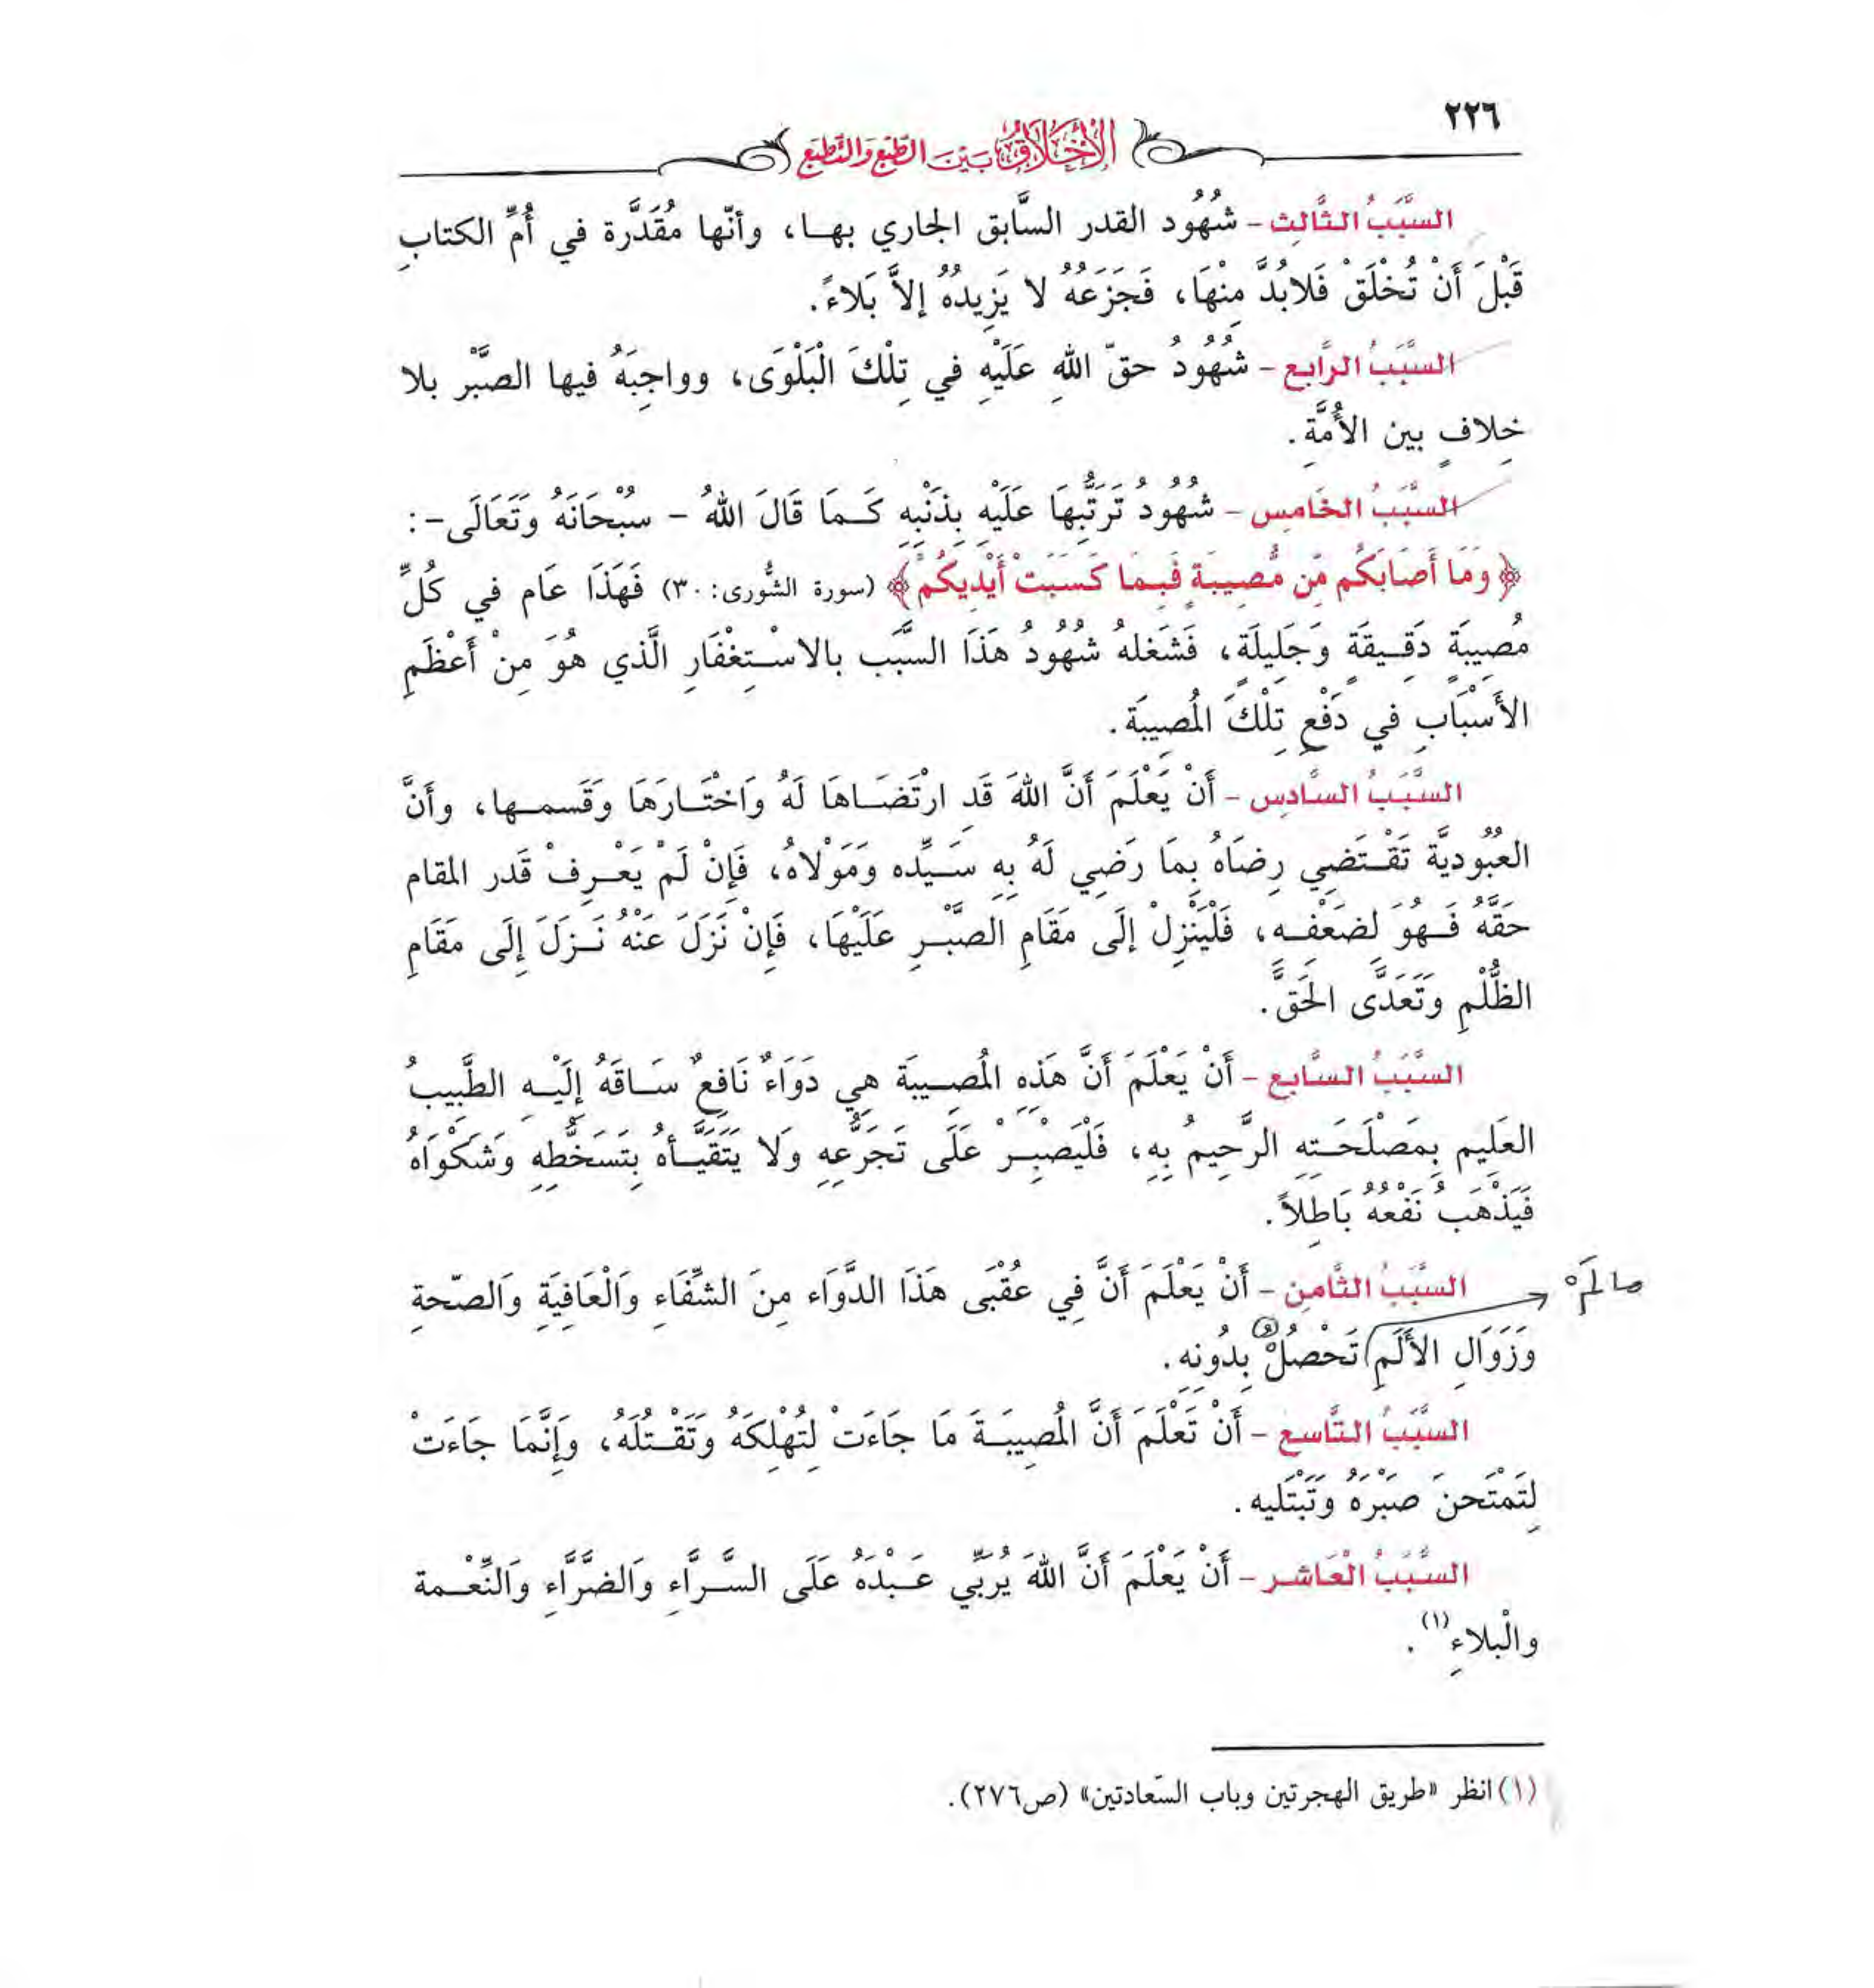 ٢٢٦
الأَخْلَاقُ بَيْنَ الطَّبْعِ وَالتَّطَبُّعِ
السَّبَبُ الثَّالِث - شُهُود القدر السَّابق الجاري بهـا، وأنّها مُقَدَّرة في أُمِّ الكتابِ
قَبْلَ أَنْ تُخْلَقْ فَلابُدَّ مِنْهَا، فَجَزَعُهُ لا يَزِيدُهُ إلاَّ بَلاءً.
السَّبَبُ الرَّابِع - شُهُودُ حقّ اللهِ عَلَيْهِ في تِلْكَ الْبَلْوَى، وواجِبَهُ فيها الصَّبْر بلا
خِلافٍ بين الأُمَّةِ.
السَّبَبُ الخَامِس - شُهُودُ تَرَتُّبِهَا عَلَيْهِ بِذَنْبِهِ كَـمَا قَالَ اللهُ - سُبْحَانَهُ وَتَعَالَى-:
﴿وَمَا أَصَابَكُم مِّن مُّصِيبَةٍ فَبِمَا كَسَبَتْ أَيْدِيكُمْ﴾ (سورة الشُّورى: ٣٠) فَهَذَا عَام في كُلِّ
مُصِيبَةٍ دَقِـيقَةٍ وَجَلِيلَةٍ، فَشَغلهُ شُهُودُ هَذَا السَّبَب بالاسْـتِغْفَارِ الَّذي هُوَ مِنْ أَعْظَمِ
الأَسْبَابِ في دَفْعِ تِلْكَ المُصِيبَة.
السَّبَبُ السَّادِس - أَنْ يَعْلَمَ أَنَّ اللهَ قَد ارْتَضَـاهَا لَهُ وَاخْتَـارَهَا وَقَسمـها، وأَنَّ
العُبُودِيَّة تَقْـتَضِي رِضَاهُ بِمَا رَضِي لَهُ بِهِ سَـيِّده وَمَوْلاهُ، فَإِنْ لَمْ يَعْـرِفْ قَدر المقام
حَقَّهُ فَـهُوَ لِضَعْفِـهِ، فَلْيَنْزِلْ إِلَى مَقَامِ الصَّبْـرِ عَلَيْهَا، فَإِنْ نَزَلَ عَنْهُ نَـزلَ إِلَى مَقَامِ
الظُّلْمِ وَتَعَدَّى الحَقَّ.
السَّبَبُ السَّابِع - أَنْ يَعْلَمَ أَنَّ هَذِهِ المُصِـيبَة هِي دَوَاءٌ نَافِعٌ سَـاقَهُ إِلَيْـهِ الطَّبِيبُ
العَلِيم بِمَصْلَحَـتِهِ الرَّحِيمُ بِهِ، فَلْيَصْبِـرْ عَلَى تَجَرُّعِهِ وَلا يَتَقَيَّـأهُ بِتَسَخُّطِهِ وَشَكْوَاهُ
فَيَذْهَبُ نَفْعُهُ بَاطِلاً.
السَّبَبُ الثَّامِن - أَنْ يَعْلَمَ أَنَّ فِي عُقْبَى هَذَا الدَّوَاء مِنَ الشِّفَاءِ وَالْعَافِيَةِ وَالصّحةِ
ما لَمْ
وَزَوَالِ الأَلَمِ تَحْصُلْ بِدُونِهِ.
السَّبَبُ التَّاسع - أَنْ تَعْلَمَ أَنَّ المُصِيبَـةَ مَا جَاءَتْ لِتُهْلِكَهُ وَتَقْـتُلَهُ، وَإِنَّمَا جَاءَتْ
لِتَمْتَحنَ صَبْرَهُ وَتَبْتَلِيه.
السَّبَبُ الْعَاشـر - أَنْ يَعْلَمَ أَنَّ اللهَ يُرَبِّي عَـبْدَهُ عَلَى السَّـرَّاءِ وَالضرَّاءِ وَالنِّعْـمة
والْبلاءِ(١).
(١) انظر «طريق الهجرتين وباب السّعادتين» (ص٢٧٦).